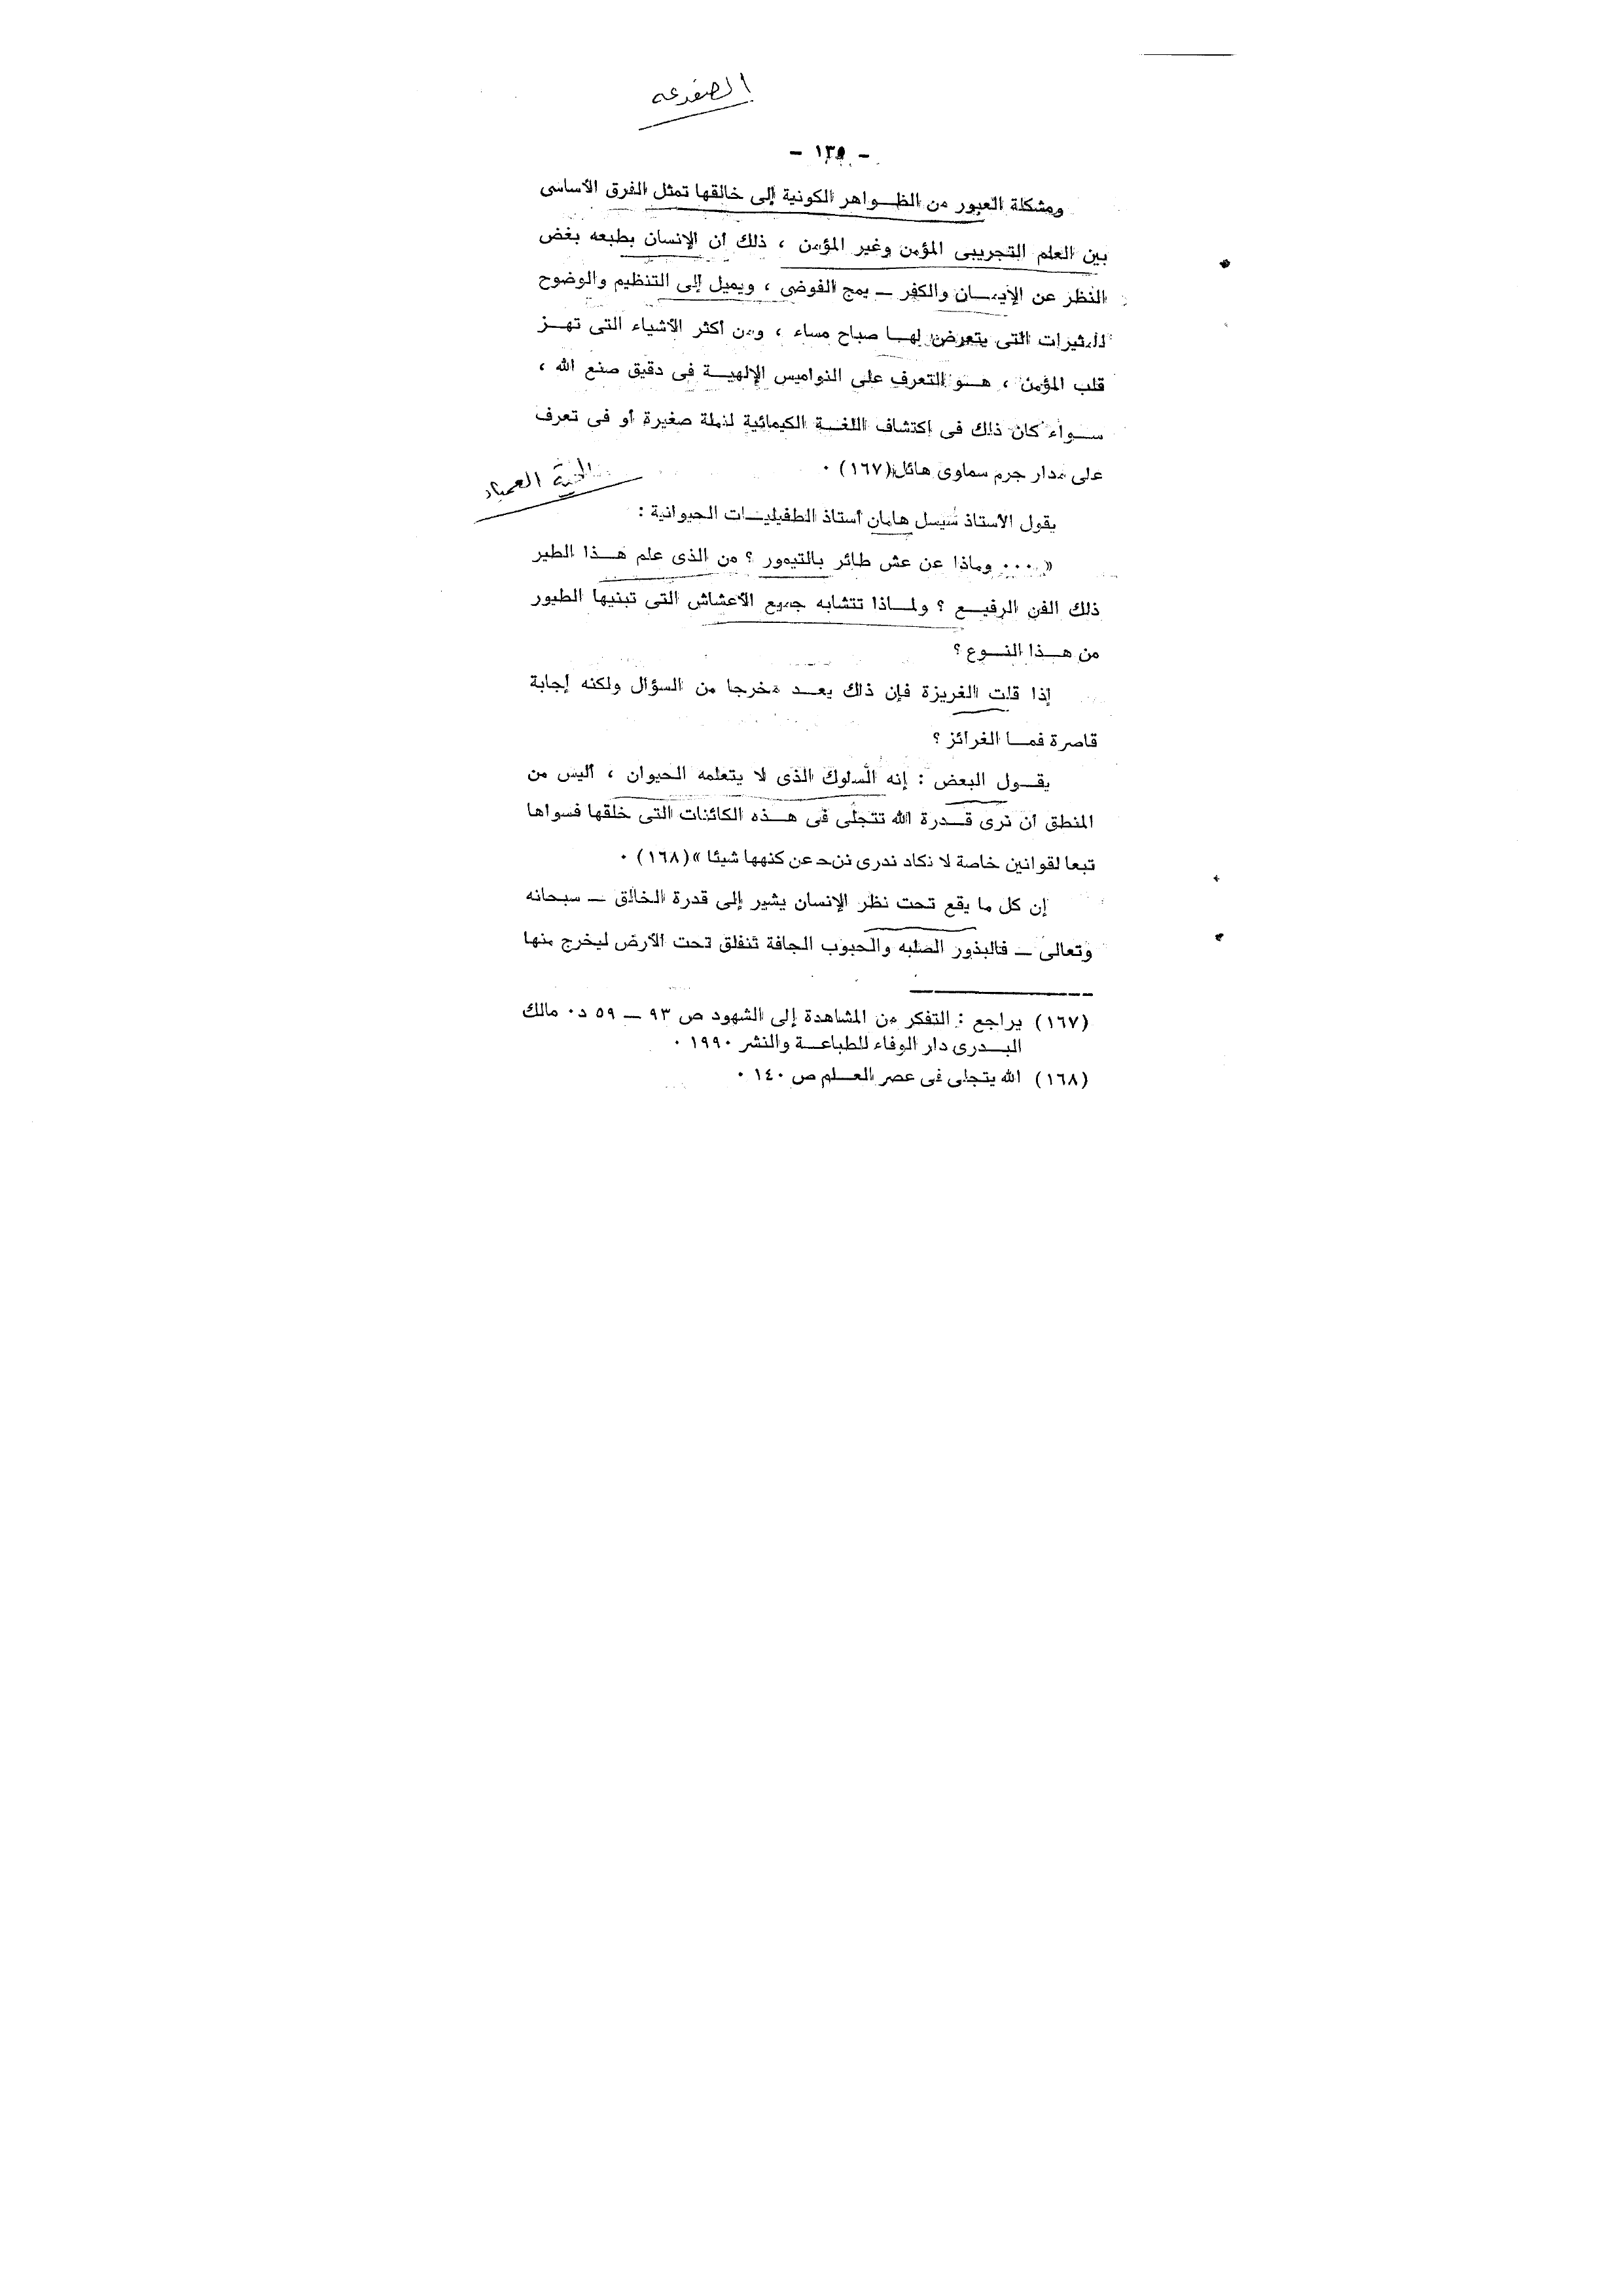 - ١٣٥ -
ومشكلة العبور من الظـــواهر الكونية إلى خالقها تمثل الفرق الأساسى
بين العلم التجريبى المؤمن وغير المؤمن ، ذلك أن الإنسان بطبعه بغض
النظر عن الإيمـــان والكفر ــ يمج الفوضى ، ويميل إلى التنظيم والوضوح
للمثيرات التى يتعرض لهــا صباح مساء ، ومن أكثر الأشياء التى تهــز
قلب المؤمن ، هــو التعرف على النواميس الإلهيــة فى دقيق صنع الله ،
ســواء كان ذلك فى اكتشاف اللغــة الكيمائية لنملة صغيرة أو فى تعرف
على مدار جرم سماوى هائل(١٦٧) ٠
العمياء
يقول الأستاذ سيسل هامان أستاذ الطفيليــات الحيوانية :
« ٠٠٠ وماذا عن عش طائر بالتيمور ؟ من الذى علم هــذا الطير
ذلك الفن الرفيــع ؟ ولمــاذا تتشابه جميع الأعشاش التى تبنيها الطيور
من هــذا النــوع ؟
إذا قلت الغريزة فإن ذلك يعــد مخرجا من السؤال ولكنه إجابة
قاصرة فمــا الغرائز ؟
يقــول البعض : إنه السلوك الذى لا يتعلمه الحيوان ، أليس من
المنطق أن نرى قــدرة الله تتجلى فى هــذه الكائنات التى خلقها فسواها
تبعا لقوانين خاصة لا نكاد ندرى نحن عن كنهها شيئا »(١٦٨) ٠
إن كل ما يقع تحت نظر الإنسان يشير إلى قدرة الخالق ــ سبحانه
وتعالى ــ فالبذور الصلبه والحبوب الجافة تنفلق تحت الأرض ليخرج منها
(١٦٧) يراجع : التفكر من المشاهدة إلى الشهود ص ٩٣ ــ ٥٩ د٠ مالك
البــدرى دار الوفاء للطباعــة والنشر ١٩٩٠ ٠
(١٦٨) الله يتجلى فى عصر العــلم ص ١٤٠ ٠